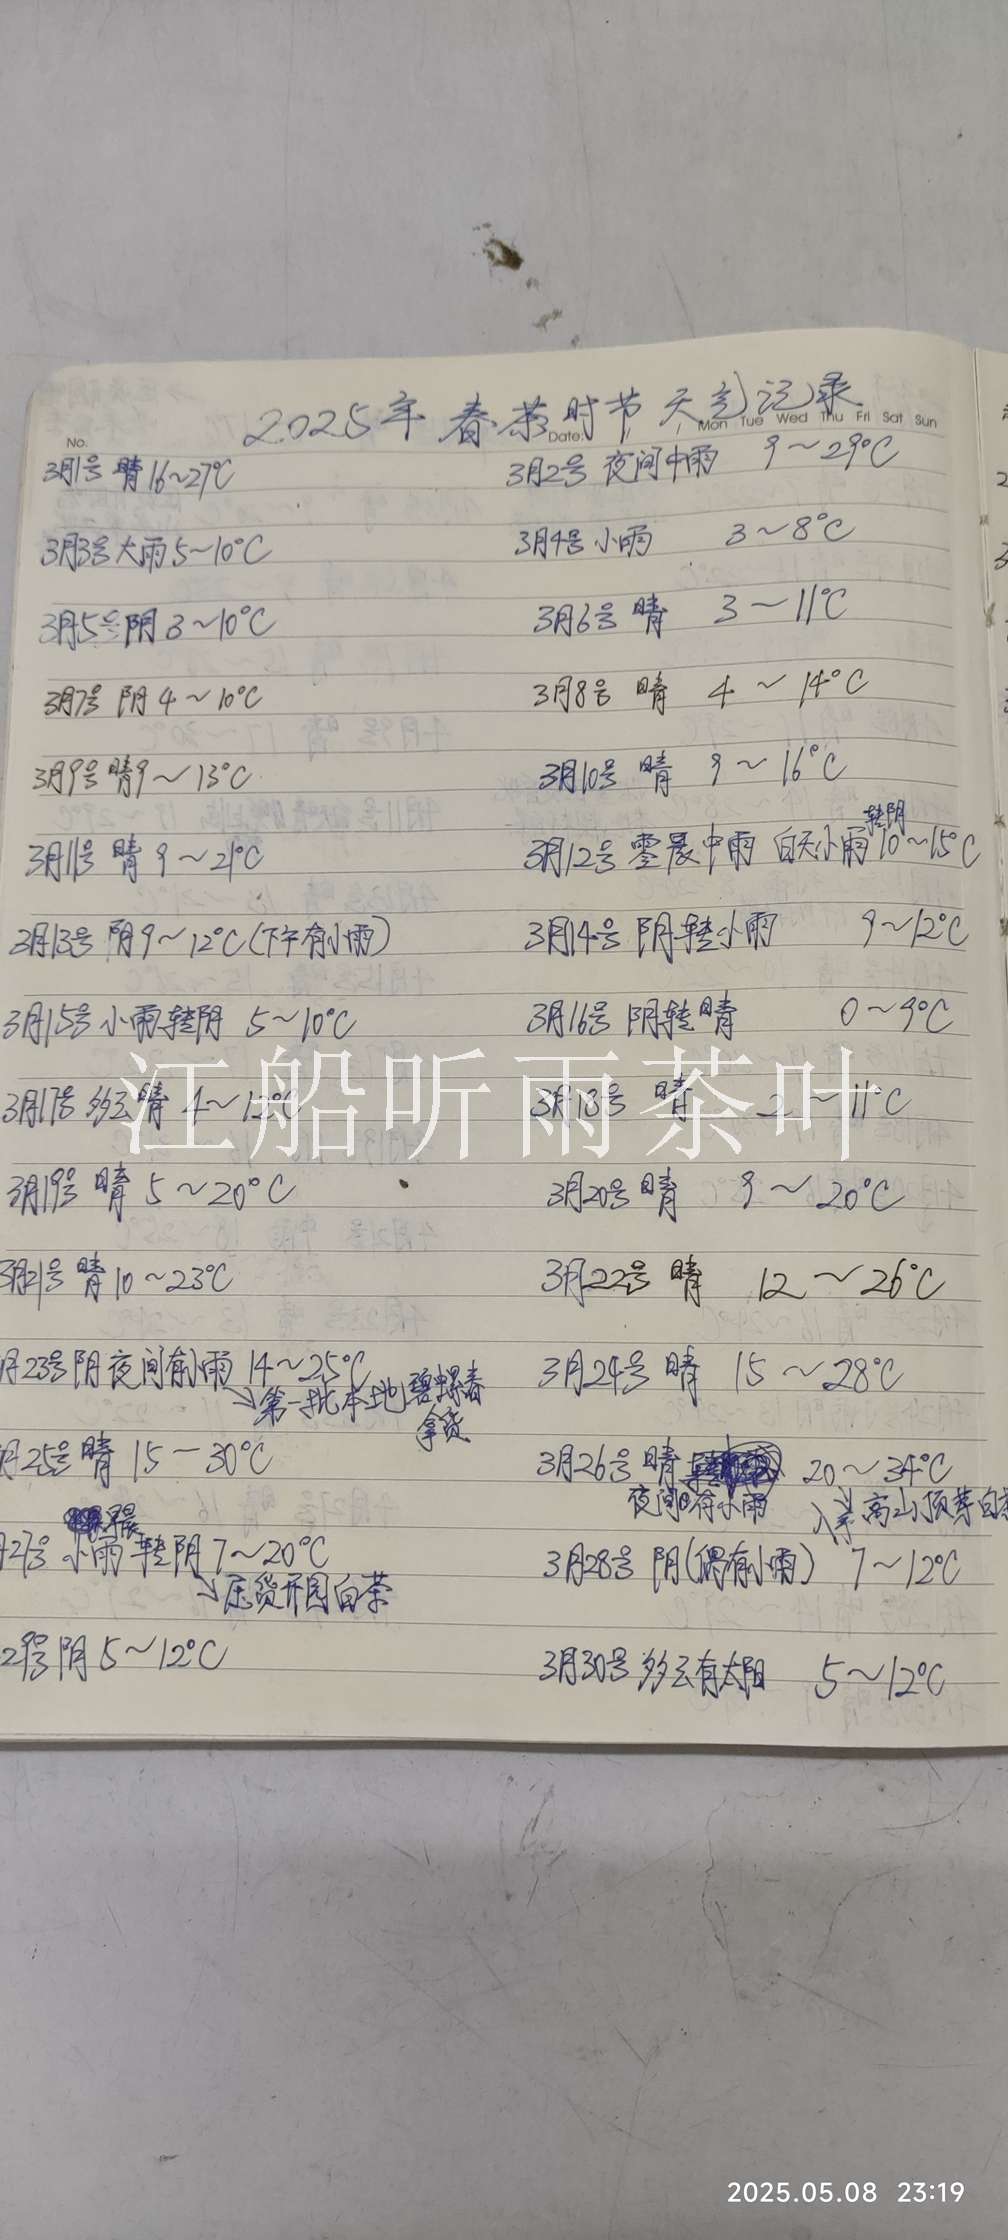 2025年春茶时节天气记录
No.
Date:
Mon Tue Wed Thu Fri Sat Sun
3月1号 晴 16~27℃
3月2号 夜间中雨 9~29℃
3月3号 大雨 5~10℃
3月4号 小雨 3~8℃
3月5号 阴 3~10℃
3月6号 晴 3~11℃
3月7号 阴 4~10℃
3月8号 晴 4~14℃
3月9号 晴 9~13℃
3月10号 晴 9~16℃
3月11号 晴 9~21℃
3月12号 零晨中雨 白天小雨转阴 10~15℃
3月13号 阴 9~12℃(下午有小雨)
3月14号 阴转小雨 9~12℃
3月15号 小雨转阴 5~10℃
3月16号 阴转晴 0~9℃
江船听雨茶叶
3月17号 多云晴 4~12℃
3月18号 晴 2~11℃
3月19号 晴 5~20℃
3月20号 晴 9~20℃
3月21号 晴 10~23℃
3月22号 晴 12~26℃
月23号 阴 夜间有小雨 14~25℃
→第一批本地碧螺春
拿货
3月24号 晴 15~28℃
月25号 晴 15-30℃
3月26号 晴 20~34℃
夜间有小雨
高山顶芽白茶
月27号 早晨小雨转阴 7~20℃
→压货开园白茶
3月28号 阴(偶有小雨) 7~12℃
29号 阴 5~12℃
3月30号 多云有太阳 5~12℃
2025.05.08 23:19